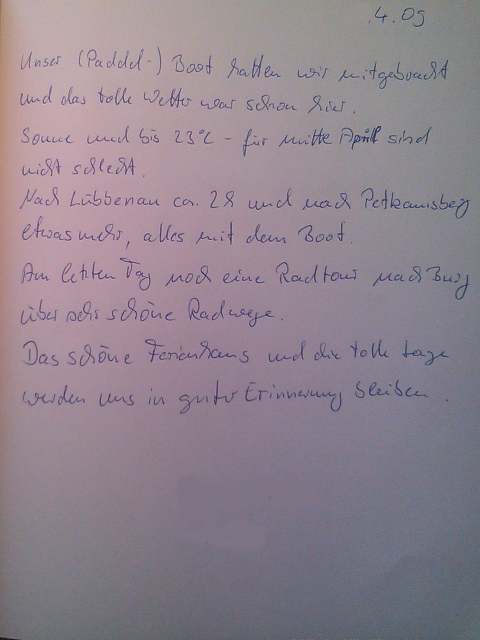 .4.09
Unser (Paddel-) Boot hatten wir mitgebracht
und das tolle Wetter war schon hier.
Sonne und bis 23°C - für mitte April sind
nicht schlecht.
Nach Lübbenau ca. 2h und nach Petkamsberg
etwas mehr, alles mit dem Boot.
Am letzten Tag noch eine Radtour nach Burg
über sehr schöne Radwege.
Das schöne Ferienhaus und die tolle Lage
werden uns in guter Erinnerung bleiben.